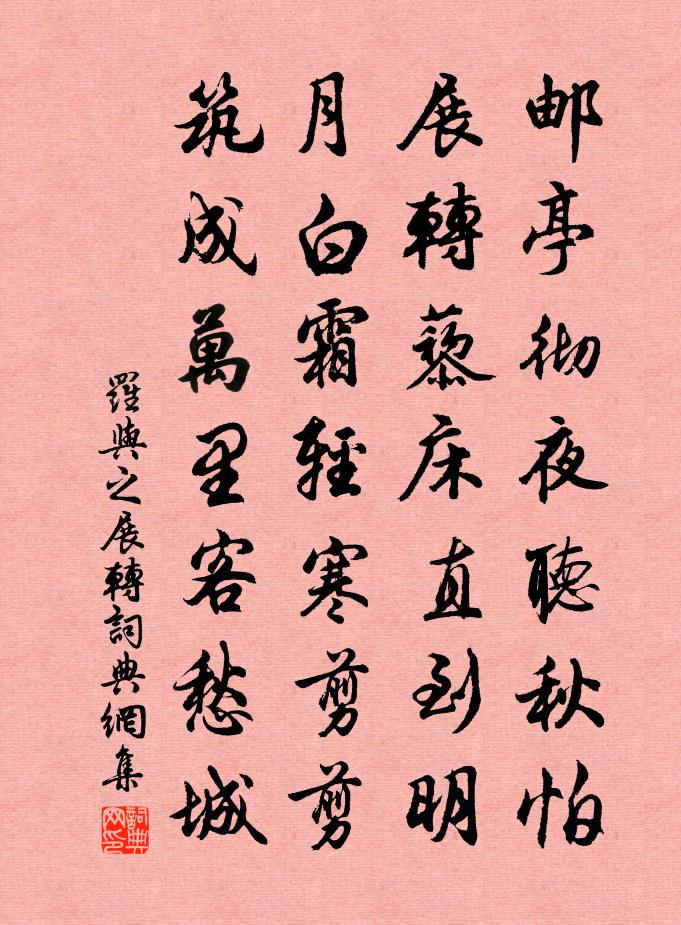 邮亭彻夜聽秋怕
展轉藜床直到明
月白霜輕寒剪剪
筑成萬里客愁城
羅與之展轉詞典網集
詞典網印